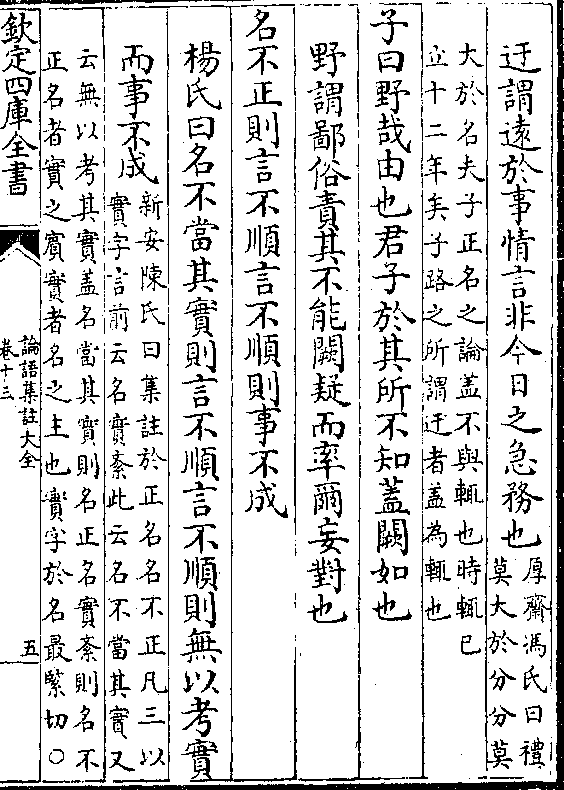 迂謂遠於事情言非今日之急務也厚齋馮氏曰禮
莫大於分分莫
大於名夫子正名之論蓋不與輒也時輒已
立十二年矣子路之所謂迂者蓋為輒也
子曰野哉由也君子於其所不知蓋闕如也
野謂鄙俗責其不能闕疑而率爾妄對也
名不正則言不順言不順則事不成
楊氏曰名不當其實則言不順言不順則無以考實
而事不成新安陳氏曰集註於正名名不正凡三以
實字言前云名實紊此云名不當其實又
云無以考其實盖名當其實則名正名實紊則名不
正名者實之賔實者名之主也實字於名最緊切○
欽定四庫全書
論語集註大全
卷十三
五